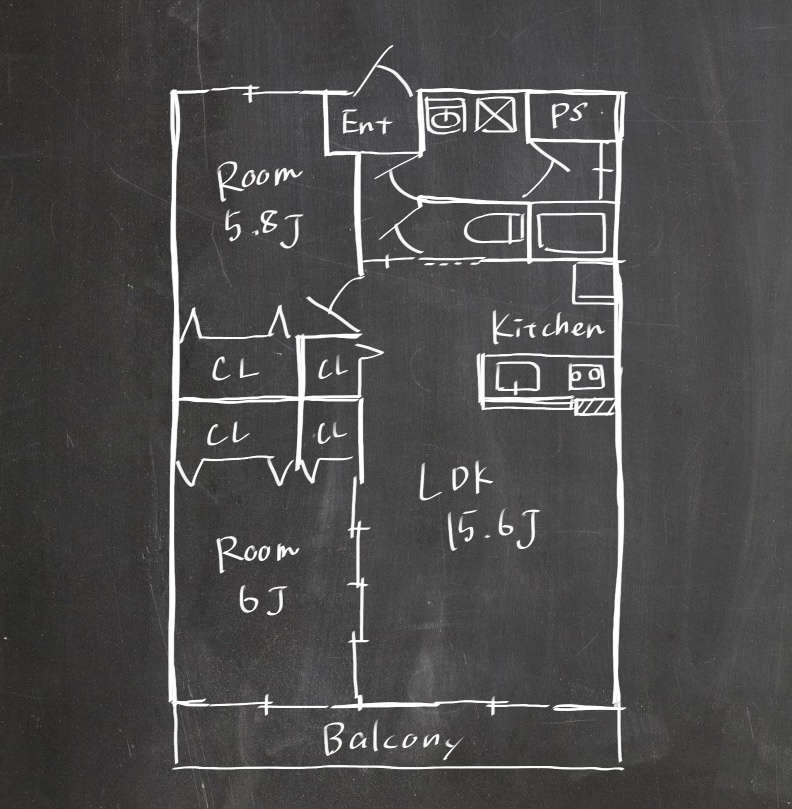 Ent
PS
Room
5.8J
Kitchen
CL
CL
CL
CL
LDK
15.6J
Room
6J
Balcony